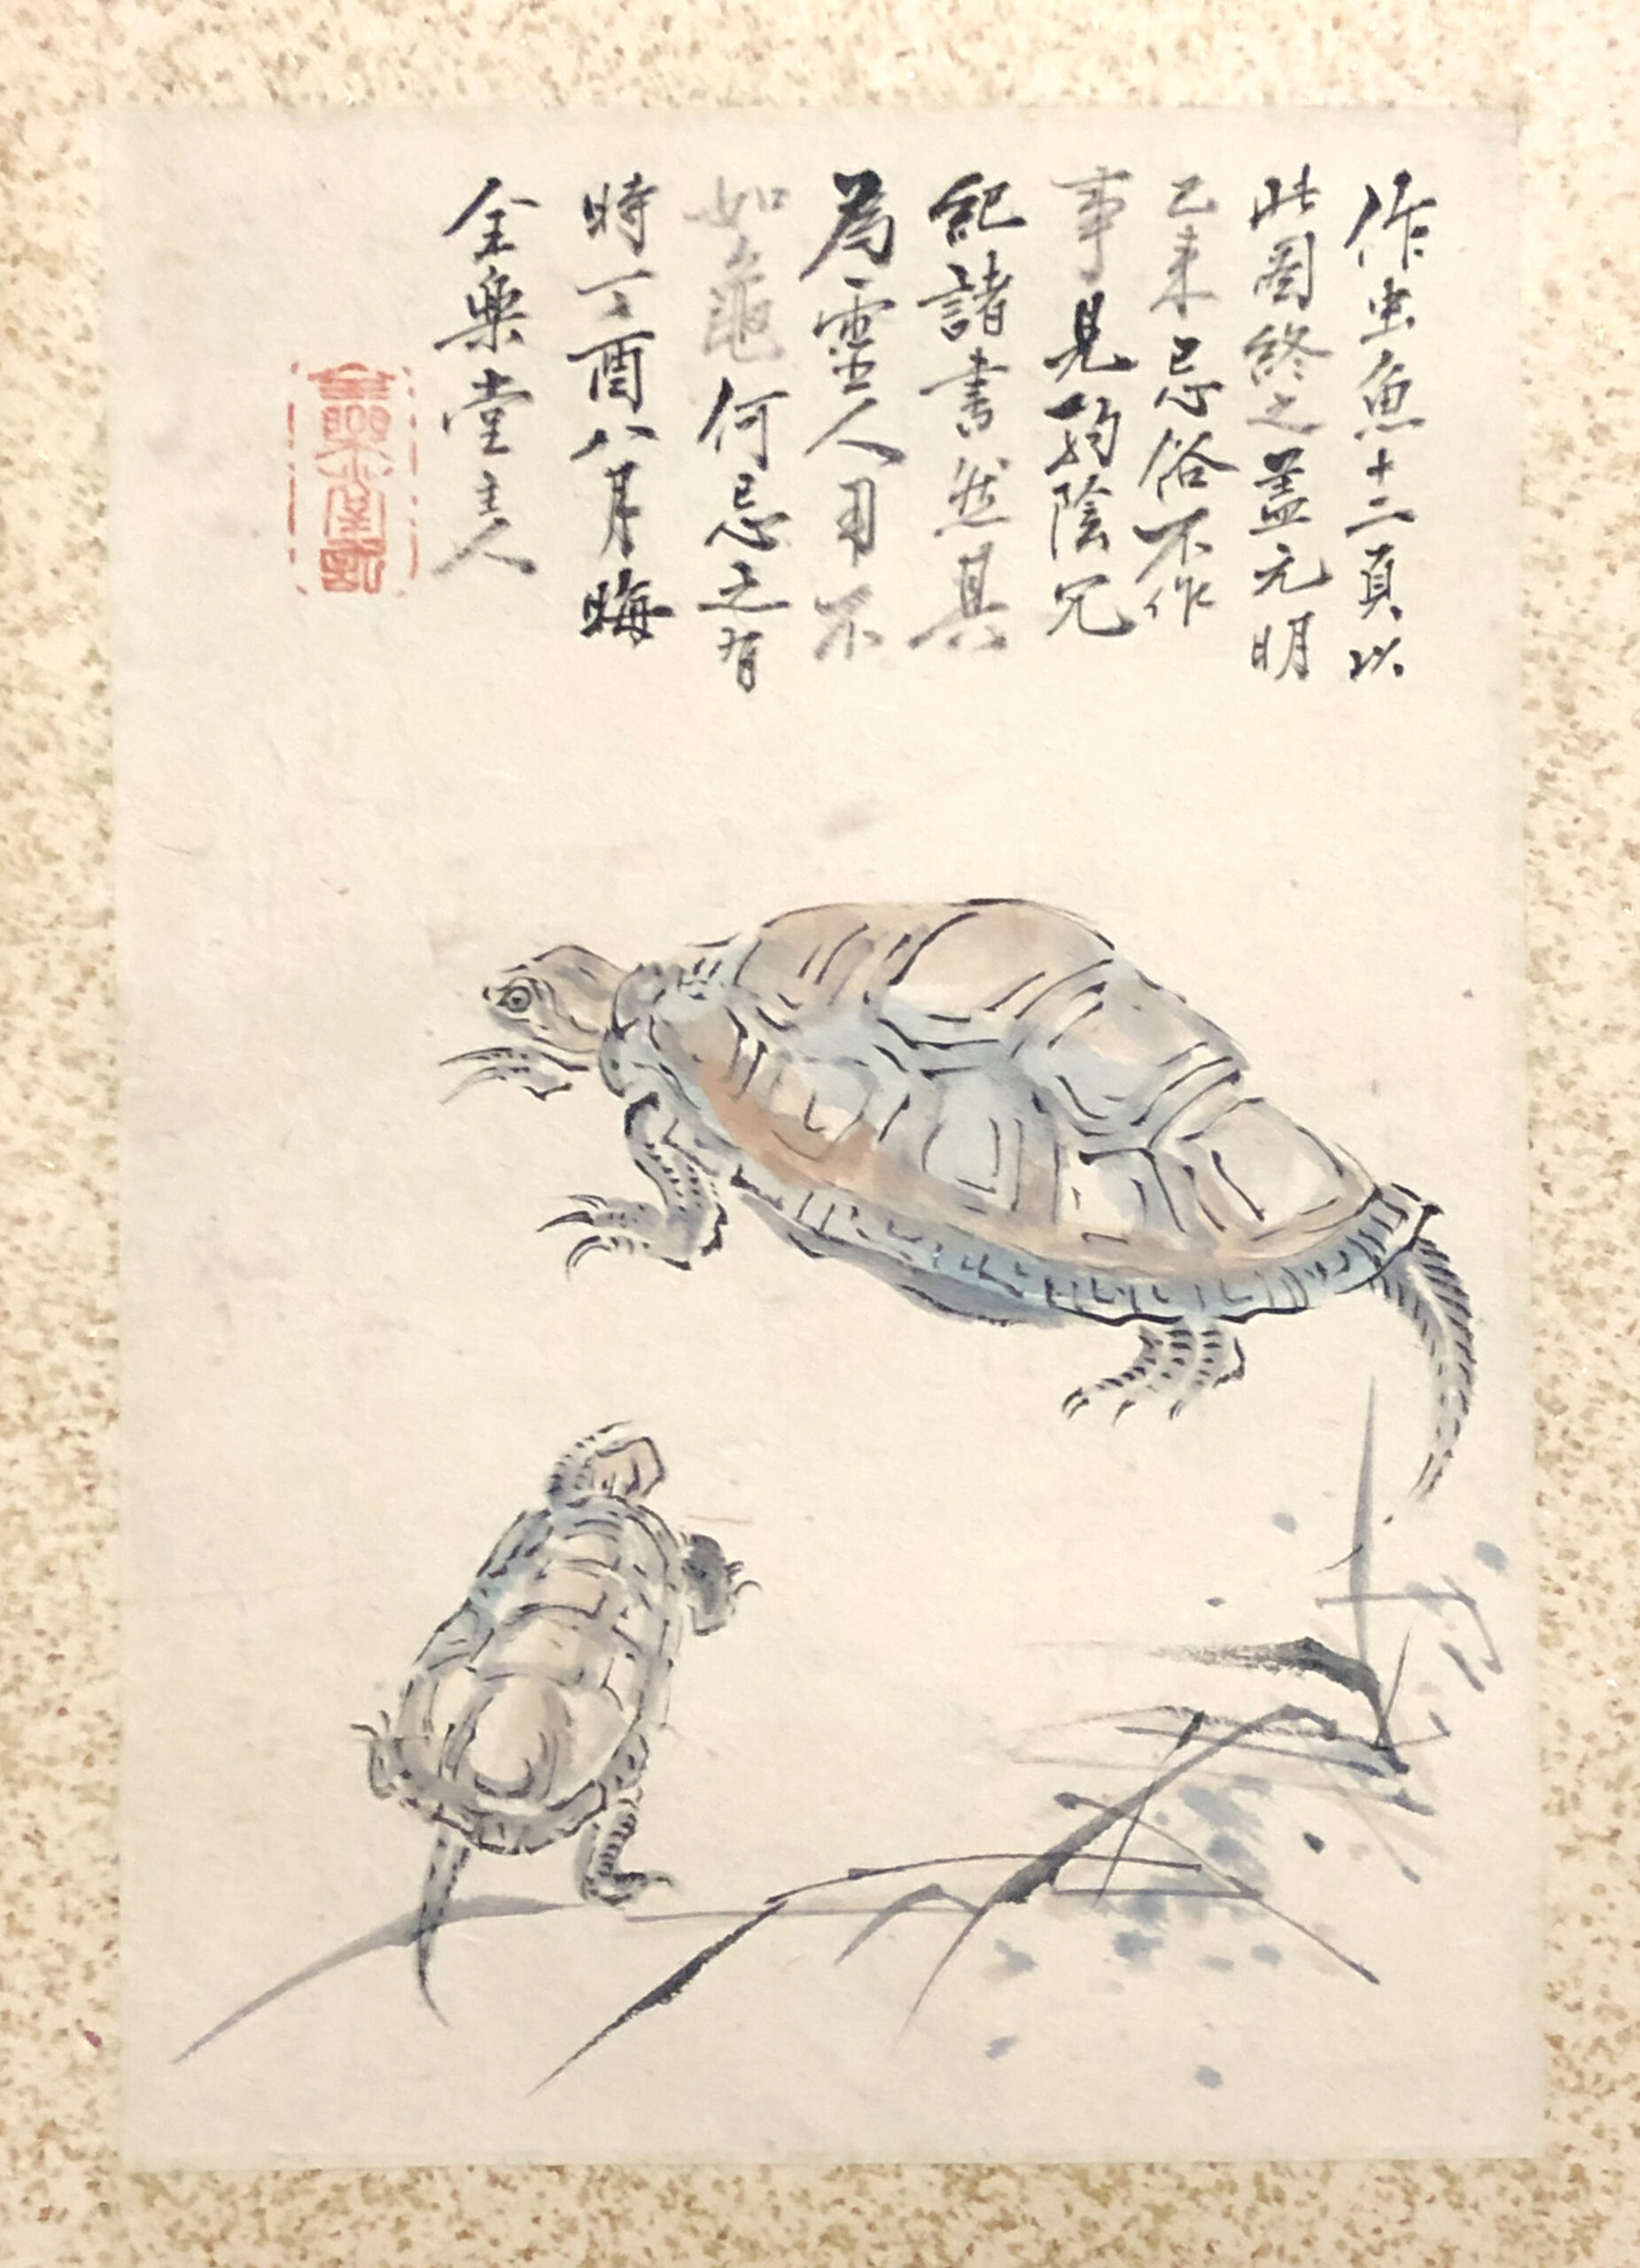 作虫魚十二頁以
此圖終之蓋元明
已來忌俗不作
事見畒陰冗
記諸書然其
為靈人用不
如龜何忌之有
時丁酉八月晦
全樂堂主人
全樂堂記